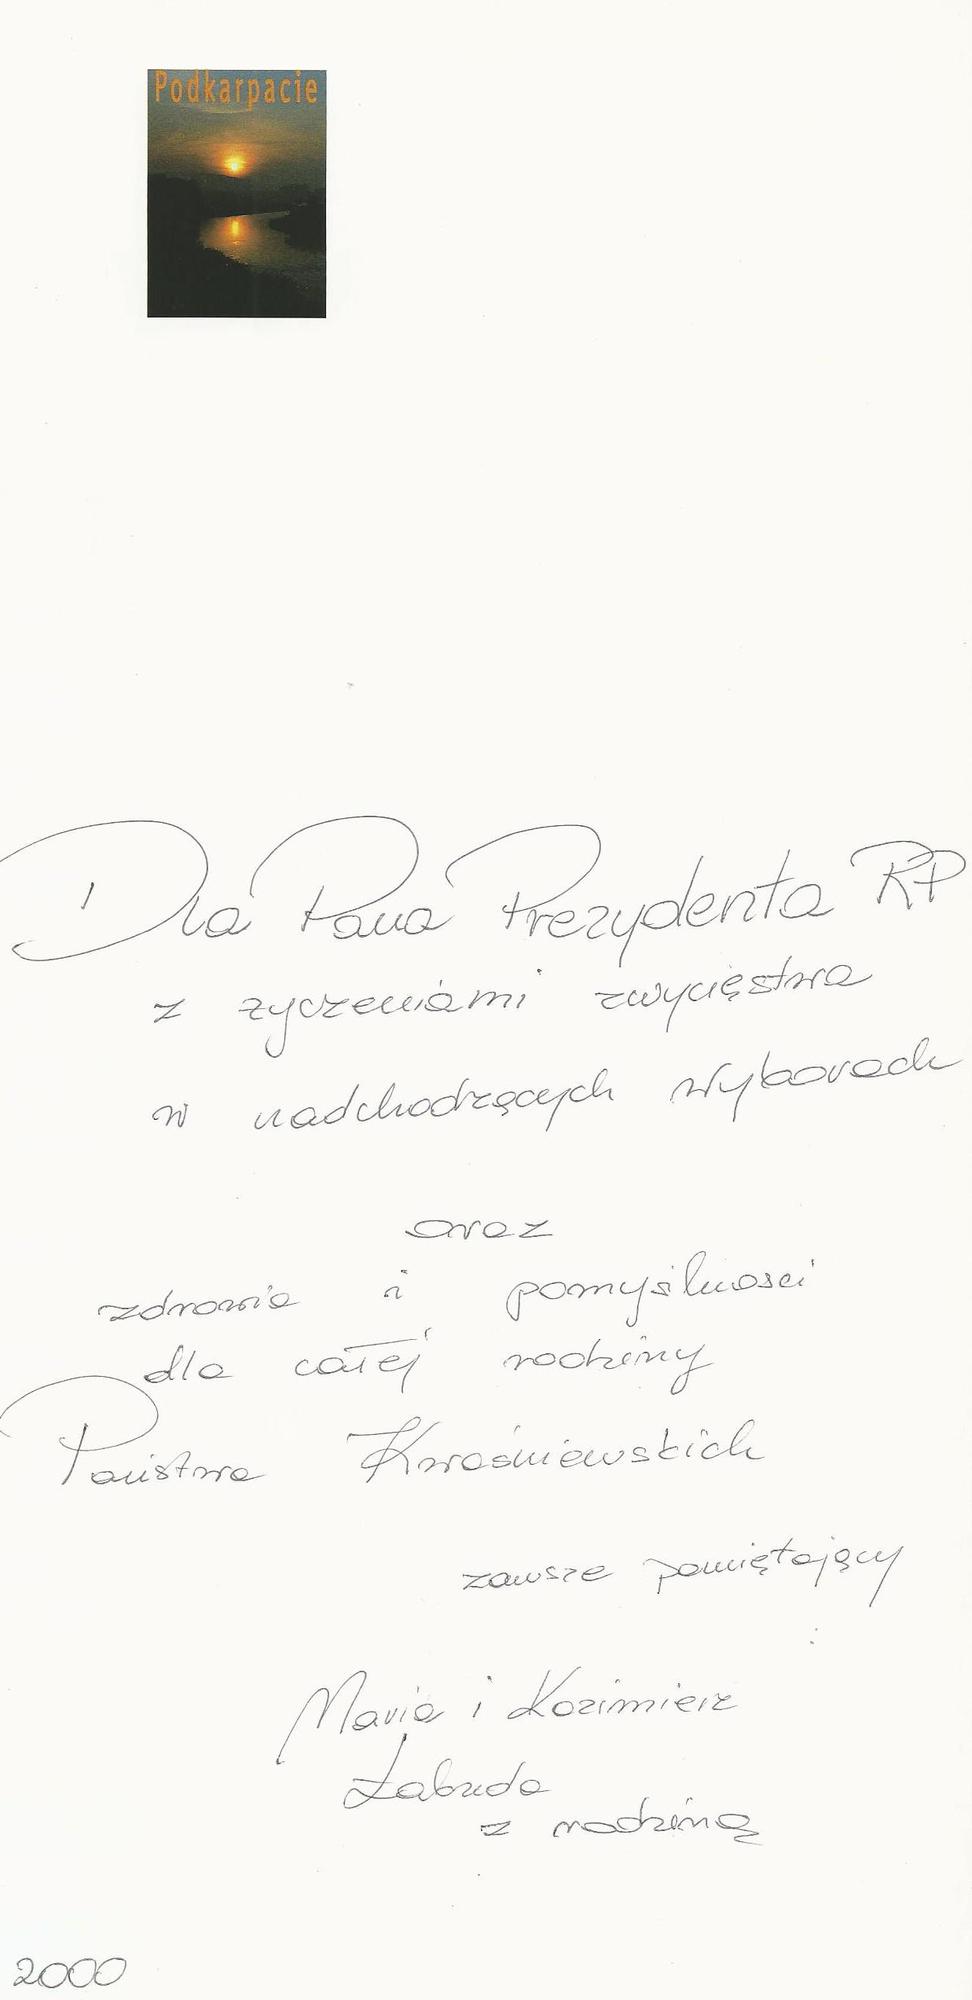 Podkarpacie
Dla Pana Prezydenta RP
z życzeniami zwycięstwa
w nadchodzących wyborach
oraz
zdrowia i pomyślności
dla całej rodziny
Państwa Kwaśniewskich
zawsze pamiętający
Maria i Kazimierz
z rodziną
2000